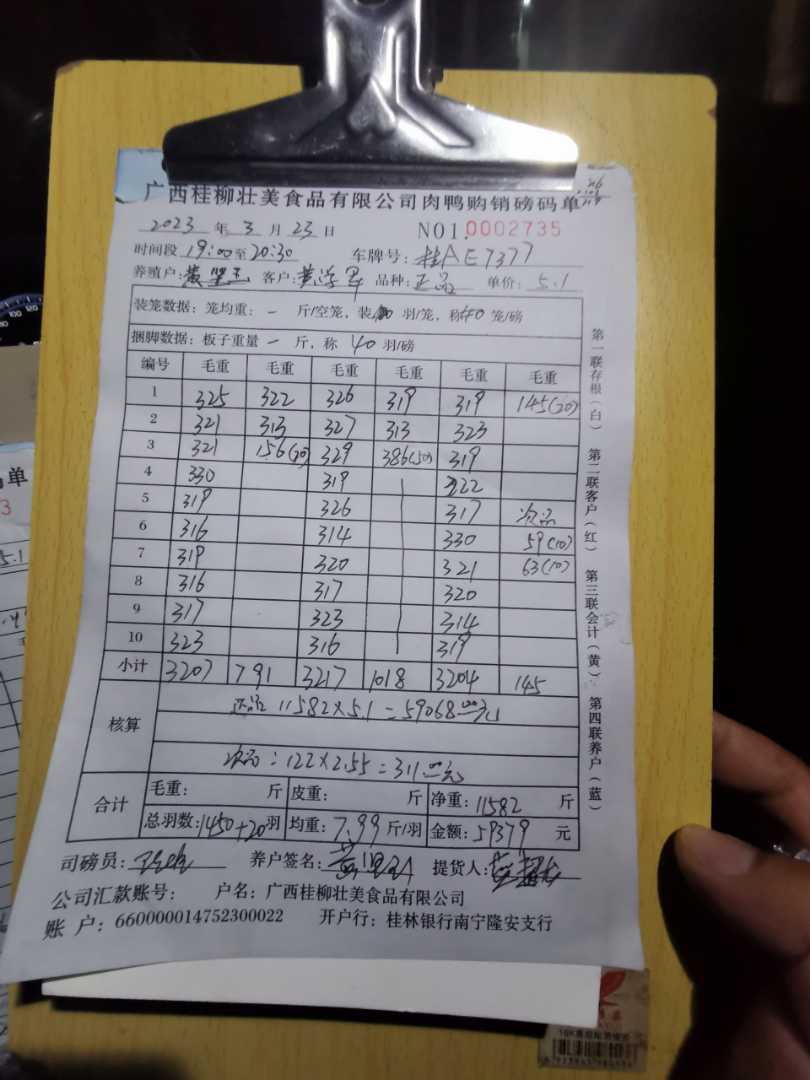 广西桂柳壮美食品有限公司肉鸭购销磅码单
2023 年 3 月 23 日 NO1.0002735
时间段 19:00至20:30 车牌号: 桂AE7377
养殖户: 黄坚玉 客户: 品种: 正品 单价: 5.1
装笼数据: 笼均重: - 斤/空笼, 装 羽/笼, 称40 笼/磅
捆脚数据: 板子重量 - 斤, 称 40 羽/磅
编号 毛重 毛重 毛重 毛重 毛重 毛重
1 325 322 326 319 319 145(20)
2 321 313 327 313 323
3 321 156(20) 329 386(50) 319
4 330 319 322
5 319 326 317 次品
6 316 314 330 59(10)
7 319 320 321 63(10)
8 316 317 320
9 317 323 314
10 323 316 319
小计 3207 791 3217 1018 3204 145
核算
正品 11582×5.1=59068.00元
次品:122×2.55=311.00元
合计 毛重: 斤 皮重: 斤 净重: 11582 斤
总羽数: 1450+20羽 均重: 7.99 斤/羽 金额: 59379 元
司磅员: 养户签名: 提货人:
公司汇款账号: 户名: 广西桂柳壮美食品有限公司
账 户: 660000014752300022 开户行: 桂林银行南宁隆安支行
第一联存根(白) 第二联客户(红) 第三联会计(黄) 第四联养户(蓝)
单
3
5.1